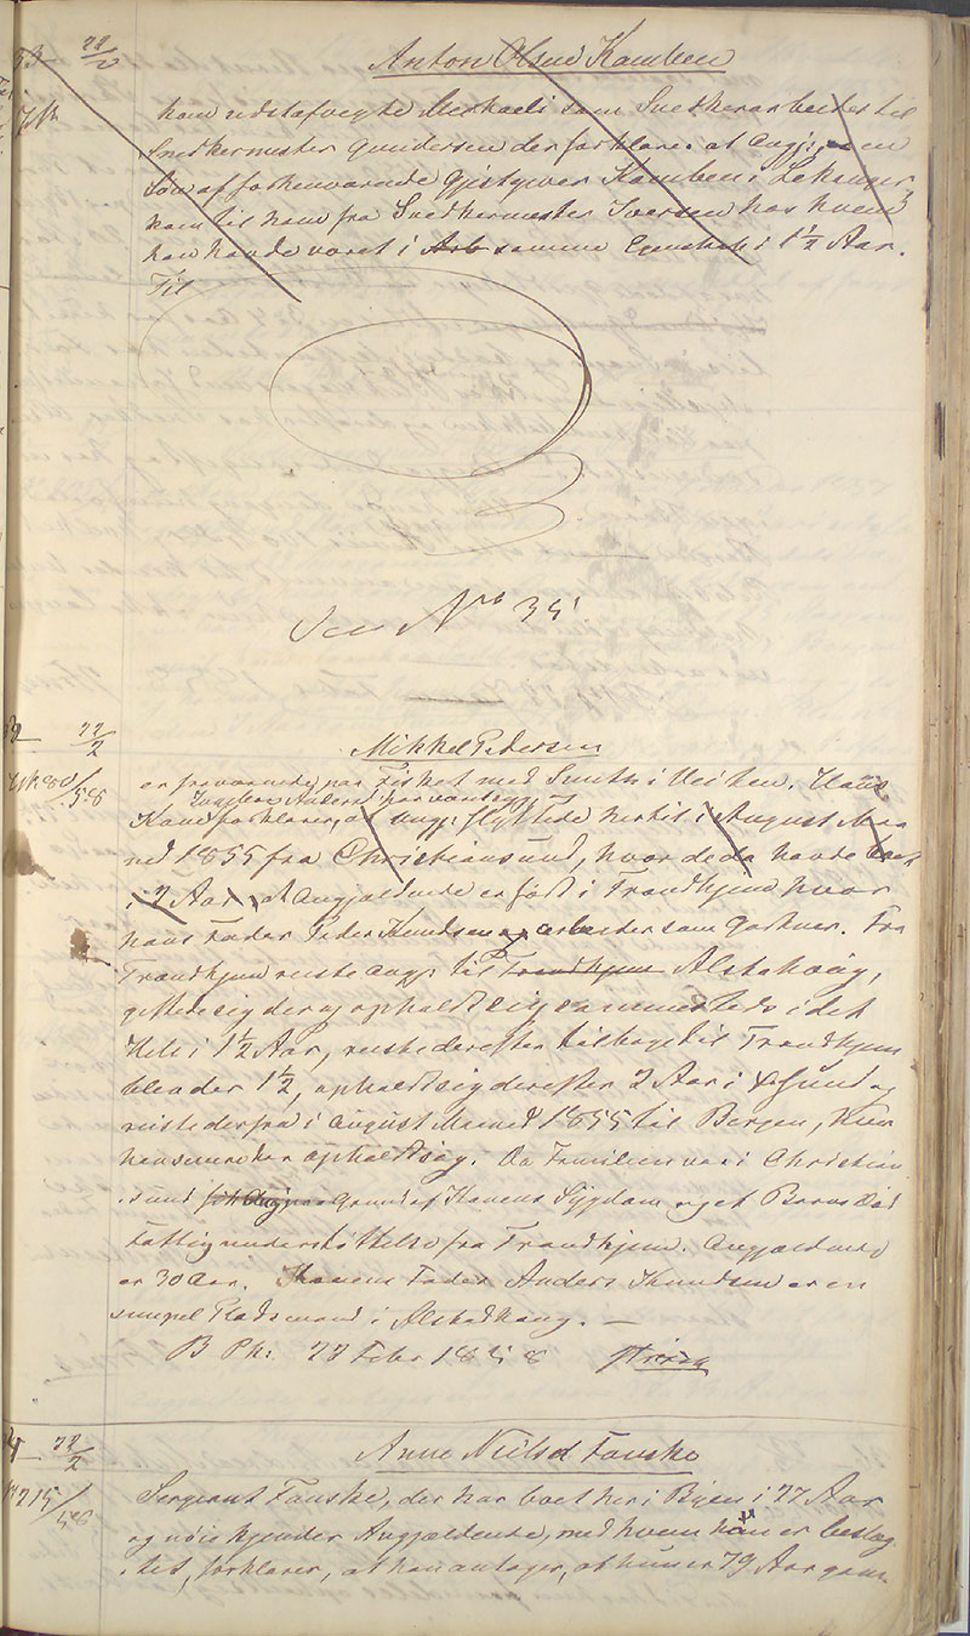 22/2
Anton Olsen Kamben
har udstafvegte Michaeli som Snedkerarbeider til
Snedkermester Gundersen der forklarer at Angj: er en
Søn af forhenværende Gjestgiver Kamben i Lekanger,
kom til ham fra Snedkermester Iversen hos hvem
han havde været i Arb samme Egenskab i 1½ Aar.
Til
See No 35!
22/2
Mikkel Pedersen
er fraværende paa Fisket med Smith i Veiten. Hans
Ingeborg Andersd
Kone forklarer, at Angj: flyttede hertil i August Maa
ned 1855 fra Christiansund, hvor de da havde
i 2 Aar, at Angjældende er født i Trondhjem hvor
hans Fader Peder Knudsen arbeider som Gartner. Fra
Trondhjem reiste Angj: til Trondhjem Alstahoug,
giftede sig der og opholdt sig sammesteds i det
Hele i 1½ Aar, reiste derefter tilbage til Trondhjem
blev der 1½, opholdt sig derefter 2 Aar i Chsund og
reiste derfra i August Maaned 1855 til Bergen, hvor
han senere har opholdt sig. Da Familien var i Christian
sund fik Angj paa Grund af Konens Sygdom og et Barns Død
Fattigunderstøttelse fra Trondhjem. Angjældende
er 30 Aar. Konens Fader Anders Knudsen er en
simpel Pladsmand i Alstadhaug. —
B Pk: 22 Febr 1858
22/2
Anne Nielsd Fauske
215/58
Sergeant Fauske, der har boet her i Byen i 22 Aar
og nøie kjender Angjældende, med hvem han er beslæg
tet, forklarer, at han antager, at hun er 79 Aar gam